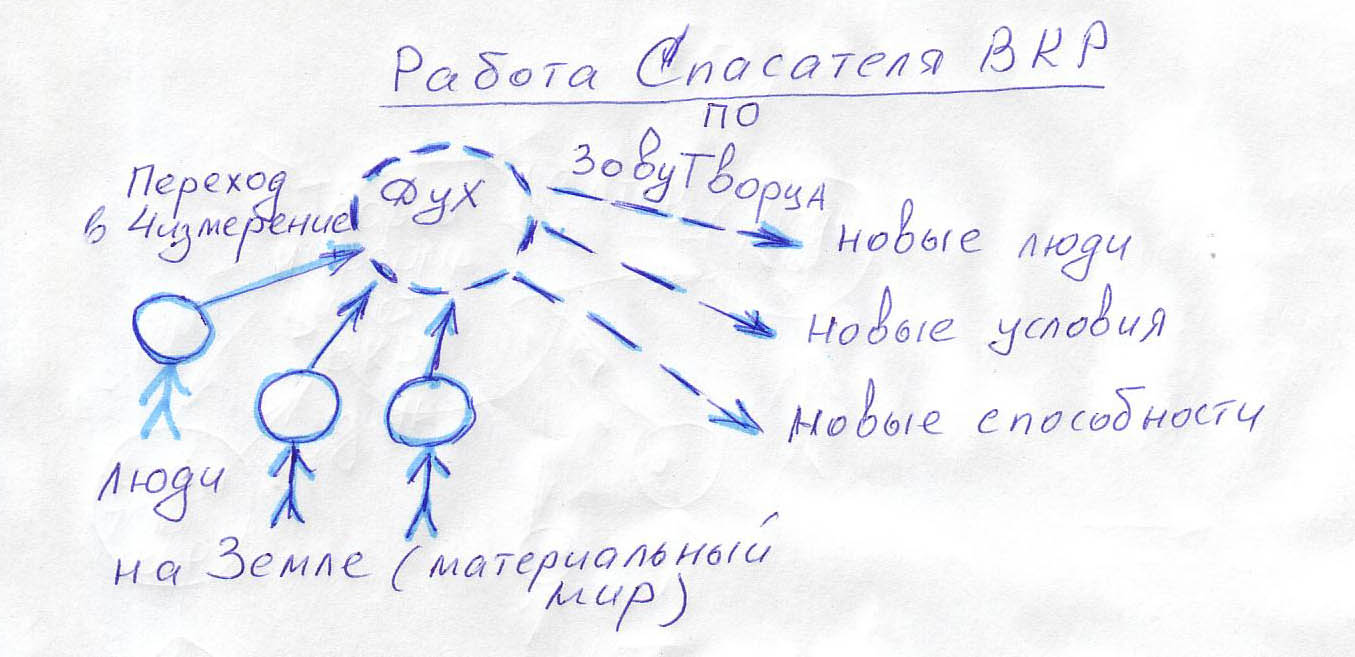 Работа Спасателя ВКР
по
Зову Творца
Переход
в 4измерение
Дух
новые люди
новые условия
новые способности
люди
на Земле (материальный
мир)